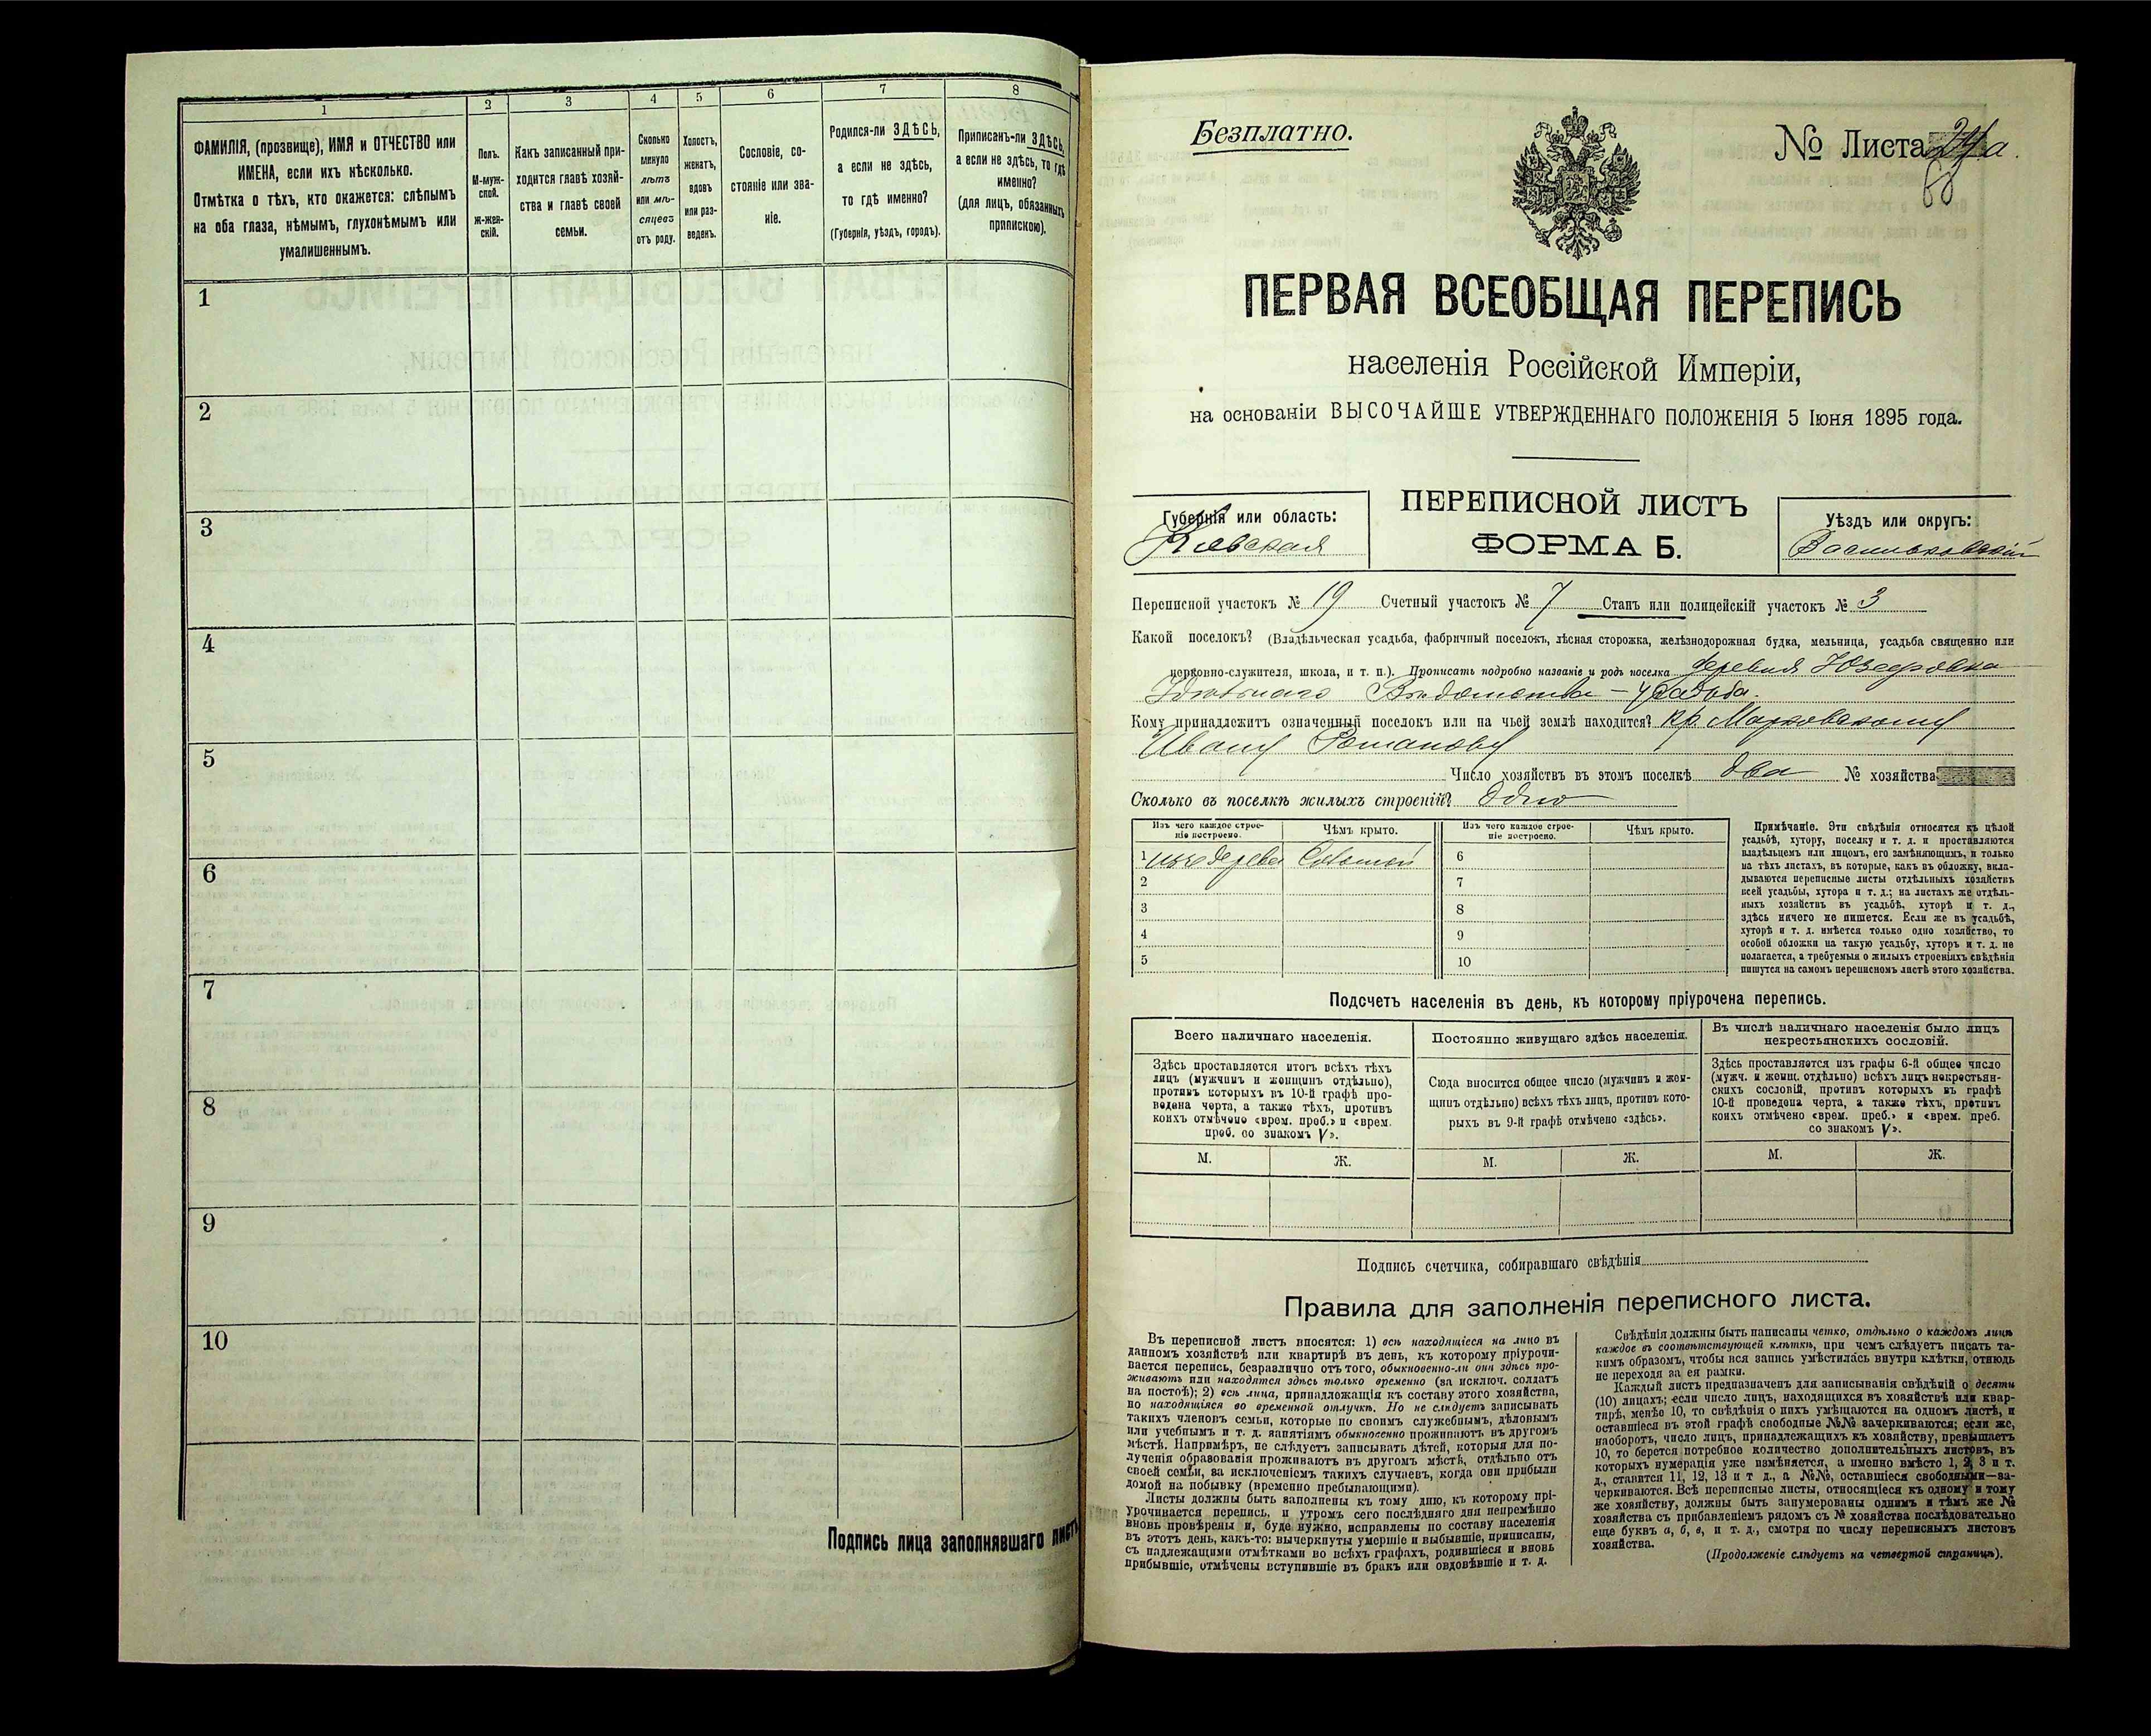 1
ФАМИЛІЯ, (прозвище), ИМЯ и ОТЧЕСТВО или
ИМЕНА, если ихъ нѣсколько.
Отмѣтка о тѣхъ, кто окажется: слѣпымъ
на оба глаза, нѣмымъ, глухонѣмымъ или
умалишеннымъ.
2
Полъ.
М-муж-
ской.
Ж-жен-
скій.
3
Какъ записанный при-
ходится главѣ хозяй-
ства и главѣ своей
семьи.
4
Сколько
минуло
лѣтъ
или мѣ-
сяцевъ
отъ роду.
5
Холостъ,
женатъ,
вдовъ
или раз-
веденъ.
6
Сословіе, со-
стояніе или зва-
ніе.
7
Родился-ли ЗДѢСЬ,
а если не здѣсь,
то гдѣ именно?
(Губернія, уѣздъ, городъ).
8
Приписанъ-ли ЗДѢСЬ,
а если не здѣсь, то гдѣ
именно?
(для лицъ, обязанныхъ
припискою).
1
2
3
4
5
6
7
8
9
10
Подпись лица заполнявшаго листъ
Безплатно.
№ Листа а.
68
ПЕРВАЯ ВСЕОБЩАЯ ПЕРЕПИСЬ
населенія Россійской Имперіи,
на основаніи ВЫСОЧАЙШЕ УТВЕРЖДЕННАГО ПОЛОЖЕНІЯ 5 Іюня 1895 года.
Губернія или область:
Кіевская
ПЕРЕПИСНОЙ ЛИСТЪ
ФОРМА Б.
Уѣздъ или округъ:
Васильковскій
Переписной участокъ № 19 Счетный участокъ № 7 Станъ или полицейскій участокъ № 3
Какой поселокъ? (Владѣльческая усадьба, фабричный поселокъ, лѣсная сторожка, желѣзнодорожная будка, мельница, усадьба священно или
церковно-служителя, школа, и т. п.). Прописать подробно названіе и родъ поселка деревня Юзефовка
Удѣльнаго Вѣдомства – усадьба.
Кому принадлежитъ означенный поселокъ или на чьей землѣ находится? кр. Марковскому
Ивану Романову
Число хозяйствъ въ этомъ поселкѣ два № хозяйства
Сколько въ поселкѣ жилыхъ строеній? одно
Изъ чего каждое строе-
ніе построено.
Чѣмъ крыто.
Изъ чего каждое строе-
ніе построено.
Чѣмъ крыто.
1 изъ дерева Соломой 6
2 7
3 8
4 9
5 10
Примѣчаніе. Эти свѣдѣнія относятся къ цѣлой
усадьбѣ, хутору, поселку и т. д. и проставляются
владѣльцемъ или лицомъ, его замѣняющимъ, и только
на тѣхъ листахъ, въ которые, какъ въ обложку, вкла-
дываются переписные листы отдѣльныхъ хозяйствъ
всей усадьбы, хутора и т. д.; на листахъ же отдѣль-
ныхъ хозяйствъ въ усадьбѣ, хуторѣ и т. д.,
здѣсь ничего не пишется. Если же въ усадьбѣ,
хуторѣ и т. д. имѣется только одно хозяйство, то
особой обложки на такую усадьбу, хуторъ и т. д. не
полагается, а требуемыя о жилыхъ строеніяхъ свѣдѣнія
пишутся на самомъ переписномъ листѣ этого хозяйства.
Подсчетъ населенія въ день, къ которому пріурочена перепись.
Всего наличнаго населенія.
Здѣсь проставляется итогъ всѣхъ тѣхъ
лицъ (мужчинъ и женщинъ отдѣльно),
противъ которыхъ въ 10-й графѣ про-
ведена черта, а также тѣхъ, противъ
коихъ отмѣчено «врем. преб.» и «врем.
преб. со знакомъ V».
М. Ж.
Постоянно живущаго здѣсь населенія.
Сюда вносится общее число (мужчинъ и жен-
щинъ отдѣльно) всѣхъ тѣхъ лицъ, противъ кото-
рыхъ въ 9-й графѣ отмѣчено «здѣсь».
М. Ж.
Въ числѣ наличнаго населенія было лицъ
некрестьянскихъ сословій.
Здѣсь проставляется изъ графы 6-й общее число
(мужч. и женщ. отдѣльно) всѣхъ лицъ некрестьян-
скихъ сословій, противъ которыхъ въ графѣ
10-й проведена черта, а также тѣхъ, противъ
коихъ отмѣчено «врем. преб.» и «врем. преб.
со знакомъ V».
М. Ж.
Подпись счетчика, собиравшаго свѣдѣнія
Правила для заполненія переписного листа.
Въ переписной листъ вносятся: 1) всѣ находящіеся на лицо въ
данномъ хозяйствѣ или квартирѣ въ день, къ которому пріурочи-
вается перепись, безразлично отъ того, обыкновенно-ли они здѣсь про-
живаютъ или находятся здѣсь только временно (за исключ. солдатъ
на постоѣ); 2) всѣ лица, принадлежащія къ составу этого хозяйства,
но находящіяся во временной отлучкѣ. Но не слѣдуетъ записывать
такихъ членовъ семьи, которые по своимъ служебнымъ, дѣловымъ
или учебнымъ и т. д. занятіямъ обыкновенно проживаютъ въ другомъ
мѣстѣ. Напримѣръ, не слѣдуетъ записывать дѣтей, которыя для по-
лученія образованія проживаютъ въ другомъ мѣстѣ, отдѣльно отъ
своей семьи, за исключеніемъ такихъ случаевъ, когда они прибыли
домой на побывку (временно пребывающими).
Листы должны быть заполнены къ тому дню, къ которому прі-
урочивается перепись, и утромъ сего послѣдняго дня непремѣнно
вновь провѣрены и, буде нужно, исправлены по составу населенія
въ этотъ день, какъ-то: вычеркнуты умершіе и выбывшіе, приписаны,
съ надлежащими отмѣтками во всѣхъ графахъ, родившіеся и вновь
прибывшіе, отмѣчены вступившіе въ бракъ или овдовѣвшіе и т. д.
Свѣдѣнія должны быть написаны четко, отдѣльно о каждомъ лицѣ
каждое въ соотвѣтствующей клѣткѣ, при чемъ слѣдуетъ писать та-
кимъ образомъ, чтобы вся запись умѣстилась внутри клѣтки, отнюдь
не переходя за ея рамки.
Каждый листъ предназначенъ для записыванія свѣдѣній о десяти
(10) лицахъ; если число лицъ, находящихся въ хозяйствѣ или квар-
тирѣ, менѣе 10, то свѣдѣнія о нихъ умѣщаются на одномъ листѣ, и
оставшіеся въ этой графѣ свободные №№ зачеркиваются; если же,
наоборотъ, число лицъ, принадлежащихъ къ хозяйству, превышаетъ
10, то берется потребное количество дополнительныхъ листовъ, въ
которыхъ нумерація уже измѣняется, а именно вмѣсто 1, 2, 3 и т.
д., ставится 11, 12, 13 и т д., а №№, оставшіеся свободными—за-
черкиваются. Всѣ переписные листы, относящіеся къ одному и тому
же хозяйству, должны быть занумерованы однимъ и тѣмъ же №
хозяйства съ прибавленіемъ рядомъ съ № хозяйства послѣдовательно
еще буквъ а, б, в, и т. д., смотря по числу переписныхъ листовъ
хозяйства.
(Продолженіе слѣдуетъ на четвертой страницѣ).